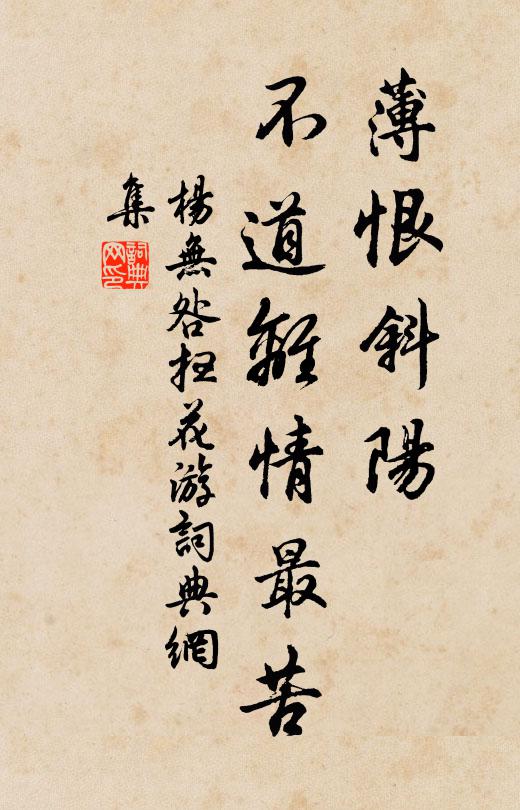 薄恨斜陽
不道離情最苦
楊無咎扫花游詞典網
集
詞典網印